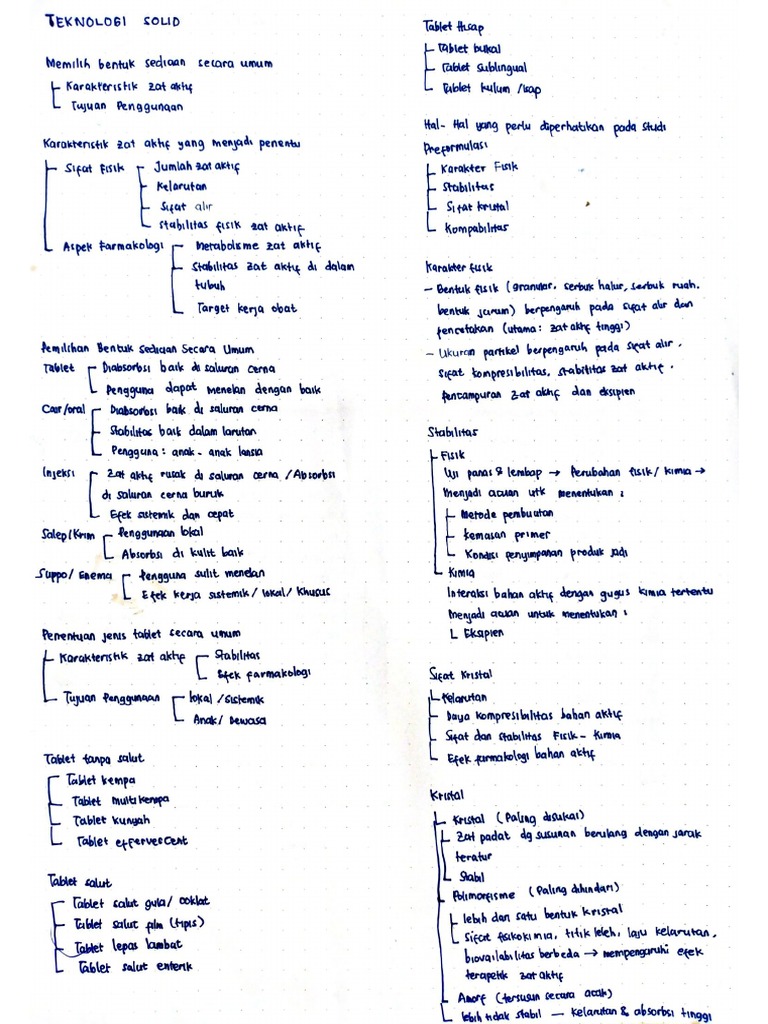 TEKNOLOGI SOLID
Memilih bentuk sediaan secara umum
Karakteristik zat aktif
Tujuan Penggunaan
Karakteristik zat aktif yang menjadi penentu
Sifat fisik
Jumlah zat aktif
Kelarutan
Sifat alir
Stabilitas fisik zat aktif
Aspek Farmakologi
Metabolisme zat aktif
Stabilitas zat aktif di dalam
tubuh
Target kerja obat
Pemilihan Bentuk Sediaan Secara Umum
Tablet
Diabsorbsi baik di saluran cerna
Pengguna dapat menelan dengan baik
Cair/oral
Diabsorbsi baik di saluran cerna
Stabilitas baik dalam larutan
Pengguna : anak - anak lansia
Injeksi
Zat aktif rusak di saluran cerna / Absorbsi
di saluran cerna buruk
Efek sistemik dan cepat
Salep/Krim
Penggunaan lokal
Absorbsi di kulit baik
Suppo/ Enema
Pengguna sulit menelan
Efek kerja sistemik/ lokal/ Khusus
Penentuan jenis tablet secara umum
Karakteristik zat aktif
Stabilitas
Efek farmakologi
Tujuan Penggunaan
lokal /Sistemik
Anak/ Dewasa
Tablet tanpa salut
Tablet kempa
Tablet multi kempa
Tablet kunyah
Tablet effervescent
Tablet salut
Tablet salut gula/ coklat
Tablet salut film (tipis)
Tablet lepas lambat
Tablet salut enterik
Tablet Hisap
Tablet bukal
Tablet sublingual
Tablet kulum /isap
Hal - Hal yang perlu diperhatikan pada studi
Preformulasi
Karakter Fisik
Stabilitas
Sifat kristal
Kompabilitas
Karakter fisik
- Bentuk fisik (granular, serbuk halus, serbuk ruah,
bentuk jarum) berpengaruh pada sifat alir dan
pencetakan (utama : zat aktif tinggi)
- Ukuran partikel berpengaruh pada sifat alir,
sifat kompresibilitas, stabilitas zat aktif,
pencampuran zat aktif dan eksipien
Stabilitas
Fisik
Uji panas & lembap → Perubahan fisik/ kimia →
Menjadi acuan utk menentukan :
Metode pembuatan
kemasan primer
Kondisi penyimpanan produk jadi
Kimia
Interaksi bahan aktif dengan gugus kimia tertentu
Menjadi acuan untuk menentukan :
Eksipien
Sifat Kristal
Kelarutan
Daya kompresibilitas bahan aktif
Sifat dan stabilitas Fisik - Kimia
Efek farmakologi bahan aktif
Kristal
Kristal (Paling disukai)
Zat padat dg susunan berulang dengan jarak
teratur
Stabil
Polimorfisme (Paling dihindari)
lebih dari satu bentuk kristal
Sifat fisikokimia, titik leleh, laju kelarutan,
bioavailabilitas berbeda → mempengaruhi efek
terapetik zat aktif
Amorf (tersusun secara acak)
lebih tidak stabil — kelarutan & absorbsi tinggi